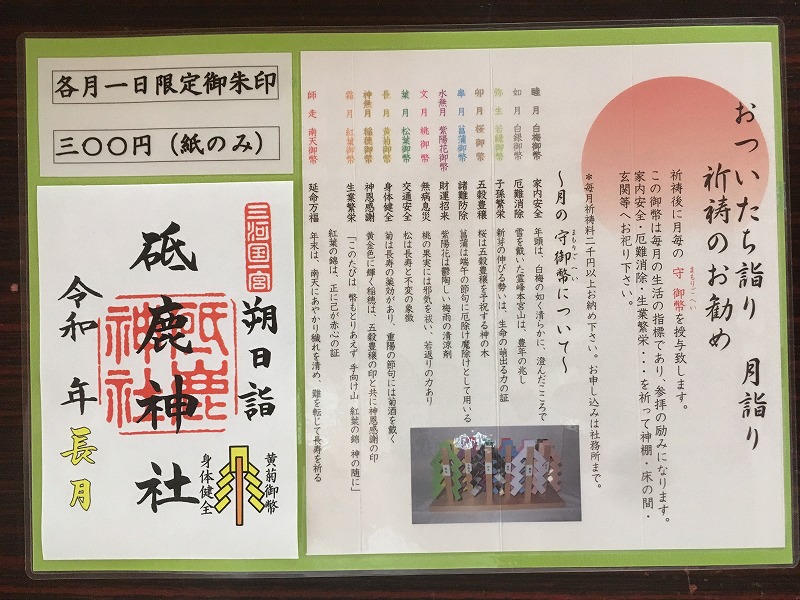 おついたち詣り 月詣り
祈祷のお勧め
祈祷後に月毎の 守(まもり)御幣(ごへい)を授与致します。
この御幣は毎月の生活の指標であり、参拝の励みになります。
家内安全・厄難消除・生業繁栄・・・を祈って神棚・床の間・
玄関等へお祀り下さい。
*毎月祈祷料二千円以上お納め下さい。お申し込みは社務所まで。
〜月の 守(まもり)御幣(ごへい)について〜
睦月 白梅御幣 家内安全 年頭は、白梅の如く清らかに、澄んだこころで
如月 白銀御幣 厄難消除 雪を戴いた霊峰本宮山は、豊年の兆し
弥生 若緑御幣 子孫繁栄 新芽の伸びる勢いは、生命の萌出る力の証
卯月 桜御幣 五穀豊穣 桜は五穀豊穣を予祝する神の木
皐月 菖蒲御幣 諸難防除 菖蒲は端午の節句に厄除け魔除けとして用いる
水無月 紫陽花御幣 財運招来 紫陽花は鬱陶しい梅雨の清涼剤
文月 桃御幣 無病息災 桃の果実には邪気を祓い、若返りの力あり
葉月 松葉御幣 交通安全 松は長寿と不変の象徴
長月 黄菊御幣 身体健全 菊は長寿の薬効があり、重陽の節句には菊酒を戴く
神無月 稲穂御幣 神恩感謝 黄金色に輝く稲穂は、五穀豊穣の印と共に神恩感謝の印
霜月 紅葉御幣 生業繁栄 「このたびは 幣もとりあえず 手向け山 紅葉の錦 神の随に」
紅葉の錦は、正に己が赤心の証
師走 南天御幣 延命万福 年末は、南天にあやかり穢れを清め、難を転じて長寿を祈る
各月一日限定御朱印
三〇〇円（紙のみ）
三河国一宮
朔日詣
砥鹿神社
砥鹿神社
令和 年 長月
黄菊御幣
身体健全